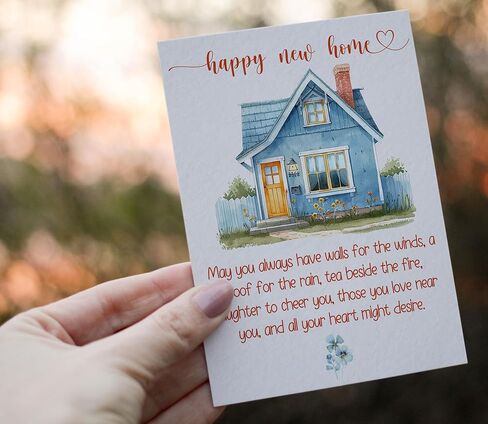 happy new home
May you always have walls for the winds, a
oof for the rain, tea beside the fire,
ughter to cheer you, those you love near
you, and all your heart might desire.